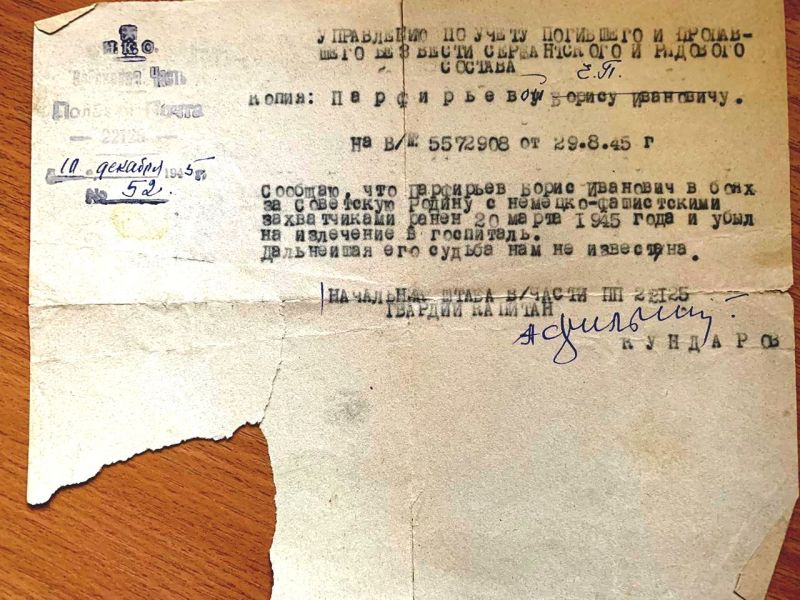 Н.К.О.
Войсковая Часть
Полевая Почта
— 22125 —
10 декабря 1945 г.
№ 52.
УПРАВЛЕНИЮ ПО УЧЕТУ ПОГИБШЕГО И ПРОПАВ-
ШЕГО БЕЗ ВЕСТИ СЕРЖАНТСКОГО И РЯДОВОГО
СОСТАВА
Е.П.
Копия: Парфирьеву ой Борису Ивановичу.
На В/№ 5572908 от 29.8.45 г
Сообщаю, что Парфирьев Борис Иванович в боях
за Советскую Родину с немецко-фашистскими
захватчиками ранен 20 марта 1945 года и убыл
на излечение в госпиталь.
Дальнейшая его судьба нам не известна.
НАЧАЛЬНИК ШТАБА В/ЧАСТИ ПП 22125
ГВАРДИИ КАПИТАН
КУНДАРОВ